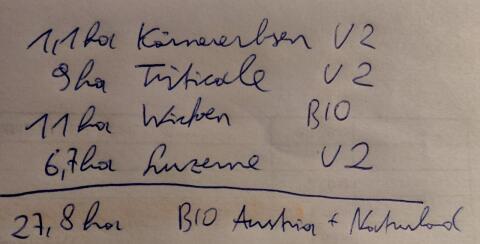 1,1ha Körnererbsen U2
9ha Triticale U2
11ha Wicken BIO
6,7ha Luzerne U2
27,8ha BIO Austria + Naturland